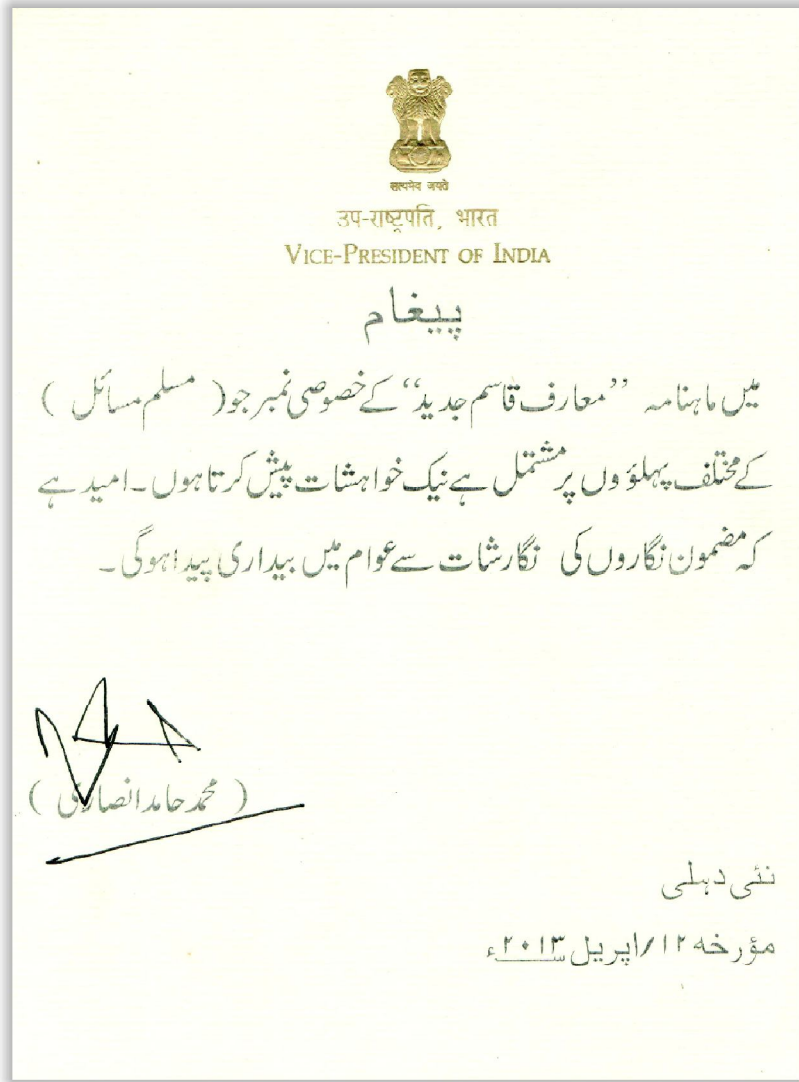 सत्यमेव जयते
उप-राष्ट्रपति, भारत
VICE-PRESIDENT OF INDIA
پیغام
میں ماہنامہ ’’معارف قاسم جدید‘‘ کے خصوصی نمبر جو ( مسلم مسائل )
کے مختلف پہلوؤں پر مشتمل ہے نیک خواہشات پیش کرتا ہوں۔ امید ہے
کہ مضمون نگاروں کی نگارشات سے عوام میں بیداری پیدا ہوگی۔
( محمد حامد انصاری )
نئی دہلی
مؤرخہ ۱۲/اپریل ۲۰۱۳ء